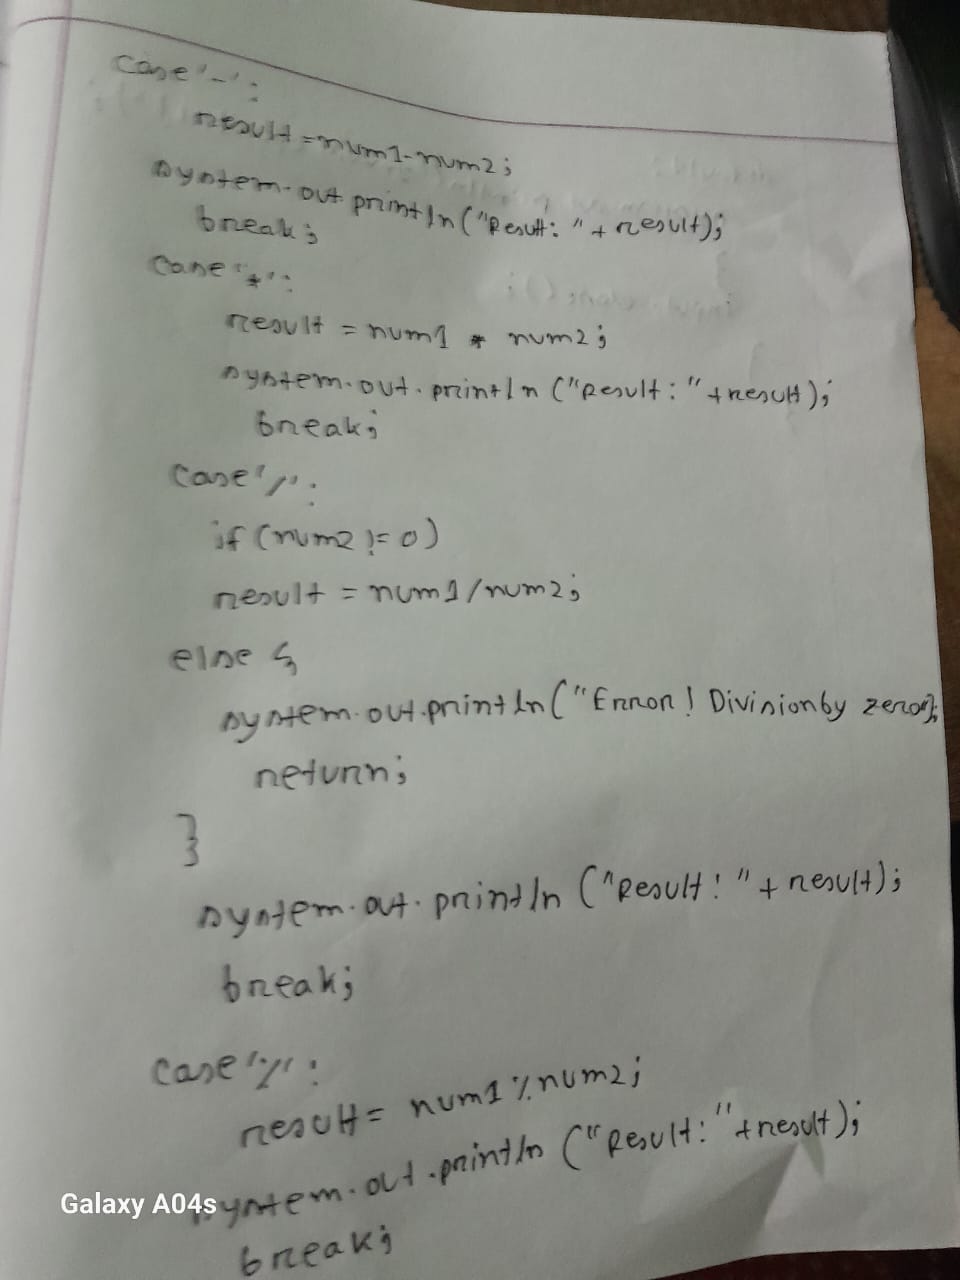 case '-':
result = num1-num2;
system.out.println("Result: " + result);
break;
case '*':
result = num1 * num2;
system.out.println("Result: " + result);
break;
case '/':
if (num2 != 0)
result = num1/num2;
else {
system.out.println("Error! Division by zero");
return;
}
system.out.println("Result: " + result);
break;
case '%':
result = num1 % num2;
system.out.println("Result: " + result);
break;
Galaxy A04s